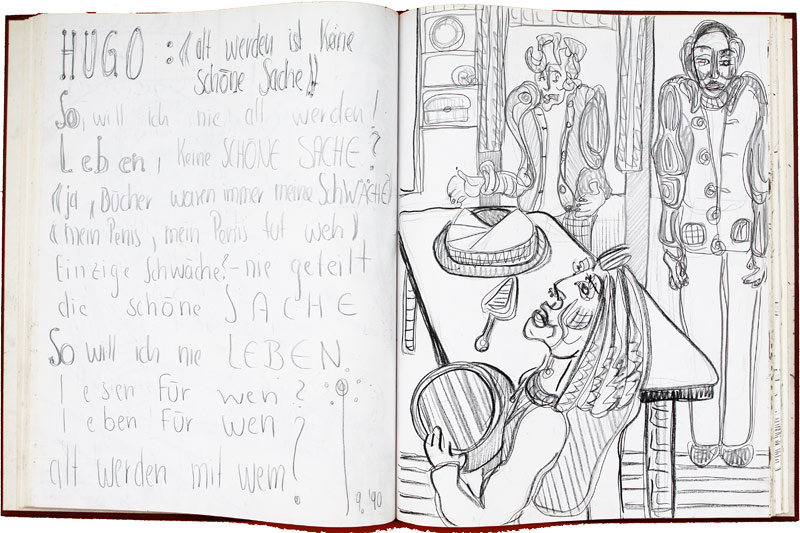 HUGO : «alt werden ist keine
schöne Sache!»
So, will ich nie alt werden!
Leben, keine SCHÖNE SACHE?
«ja, Bücher waren immer meine SCHWÄCHE»
«mein Penis, mein Penis tut weh»
Einzige Schwäche! - nie geteilt
die schöne SACHE
So will ich nie LEBEN.
lesen für wen?
leben für wen?
alt werden mit wem?
9. '90